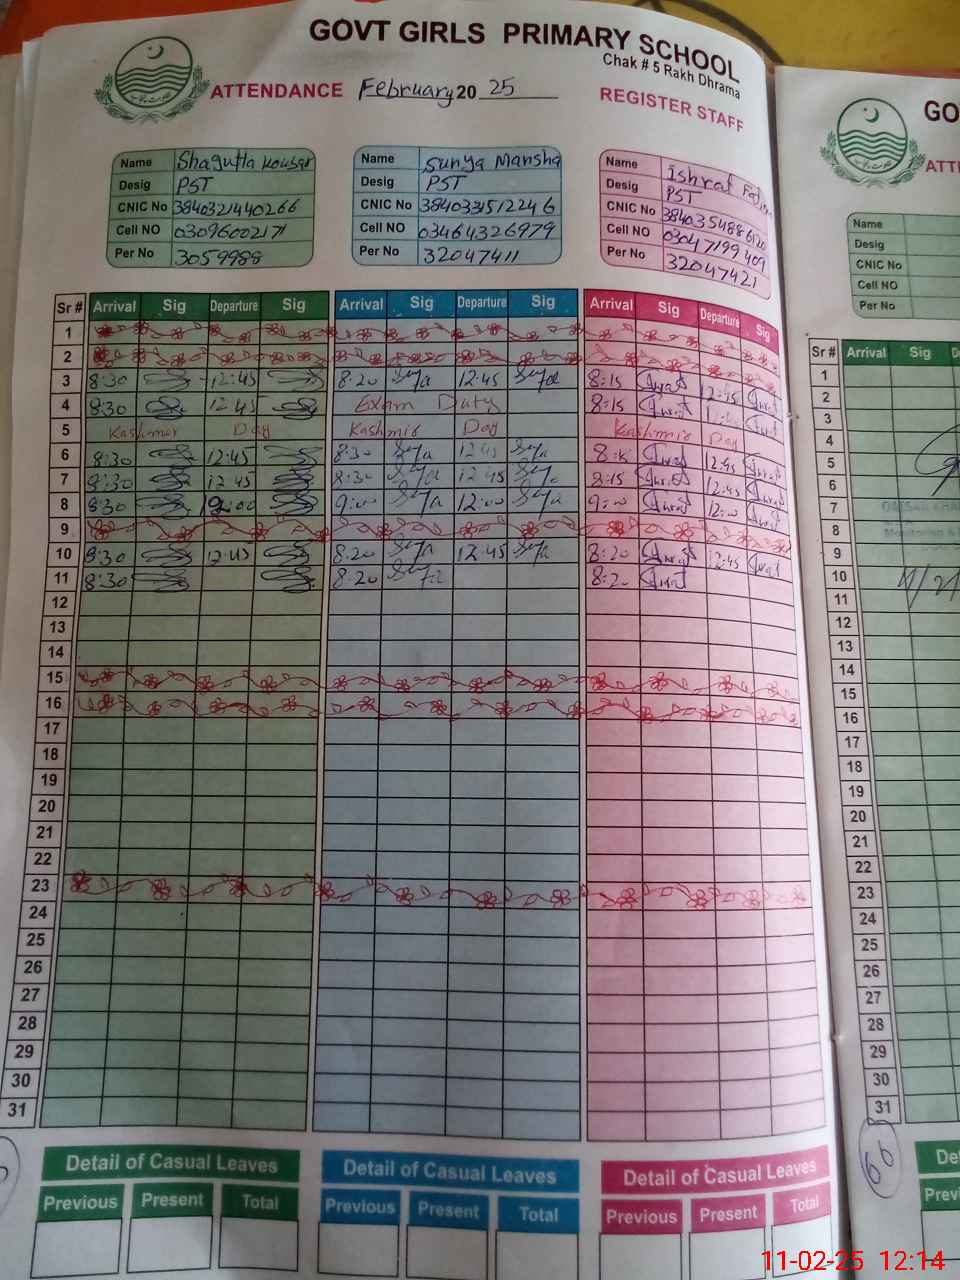 GOVT GIRLS PRIMARY SCHOOL
Chak # 5 Rakh Dhrama
ATTENDANCE February 20 25 REGISTER STAFF
Name Shagufta Kousar Name Sunya Mansha Name Ishrat
Desig PST Desig PST Desig PST
CNIC No 3840321440266 CNIC No 3840331512246 CNIC No
Cell NO 03096002171 Cell NO 03464326979 Cell NO 03047199409
Per No 3059988 Per No 32047411 Per No 32047421
Sr # Arrival Sig Departure Sig Arrival Sig Departure Sig Arrival Sig Departure Sig
1
2
3 8:30 12:45 8:20 12:45 8:15 12:45
4 8:30 12:45 Exam Duty 8:15
5 Kashmer Day Kashmir Day Kashmir Day
6 8:30 12:45 8:30 12:45 12:45
7 8:30 12:45 8:30 12:45 8:15 12:45
8 8:30 12:00 9:00 12:00 9:00 12:00
9
10 8:30 12:45 8:20 12:45 8:20 12:45
11 8:30 8:20 8:20
12
13
14
15
16
17
18
19
20
21
22
23
24
25
26
27
28
29
30
31
Detail of Casual Leaves Detail of Casual Leaves Detail of Casual Leaves
Previous Present Total Previous Present Total Previous Present Total
GO
ATT
Name
Desig
CNIC No
Cell NO
Per No
Sr # Arrival Sig
1
2
3
4
5
6
7
8
9
10
11
12
13
14
15
16
17
18
19
20
21
22
23
24
25
26
27
28
29
30
31
60
11-02-25 12:14